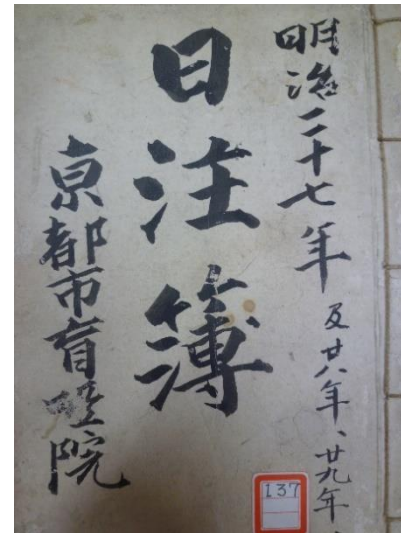 明治二十七年及廿八年、廿九年、
日注簿
京都市盲唖院
137